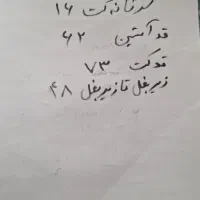 سرشانه کت ۱۶
قد آستین ۶۲
قد کت ۷۳
زیر بغل تا زیر بغل ۴۸